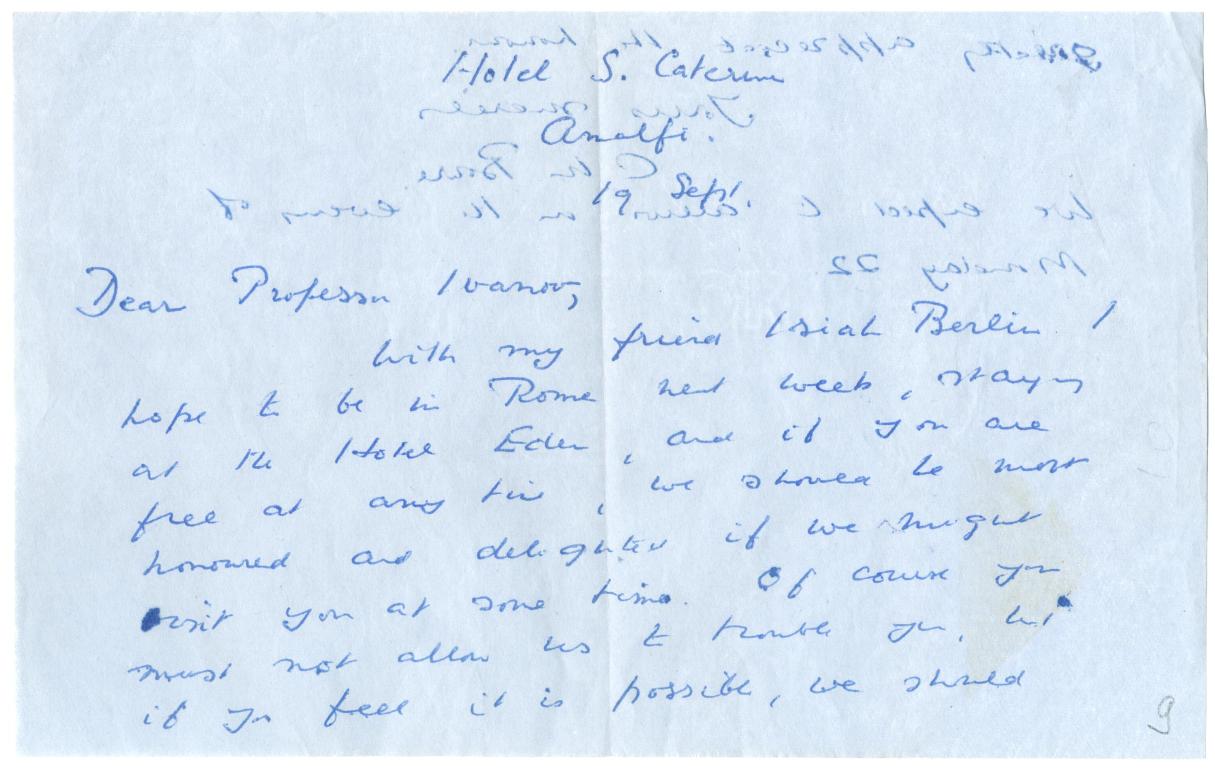 Hotel S. Caterina
Amalfi.
19 Sept.
Dear Professor Ivanov,
With my friend Isiah Berlin I
hope to be in Rome next week, staying
at the Hotel Eden, and if you are
free at any time, we should be most
honoured and delighted if we might
visit you at some time. Of course you
must not allow us to trouble you, but
if you feel it is possible, we should
9
greatly appreciate the honour.
Yours sincerely
C. M. Bowra
We expect to arrive on the evening of
Monday 22